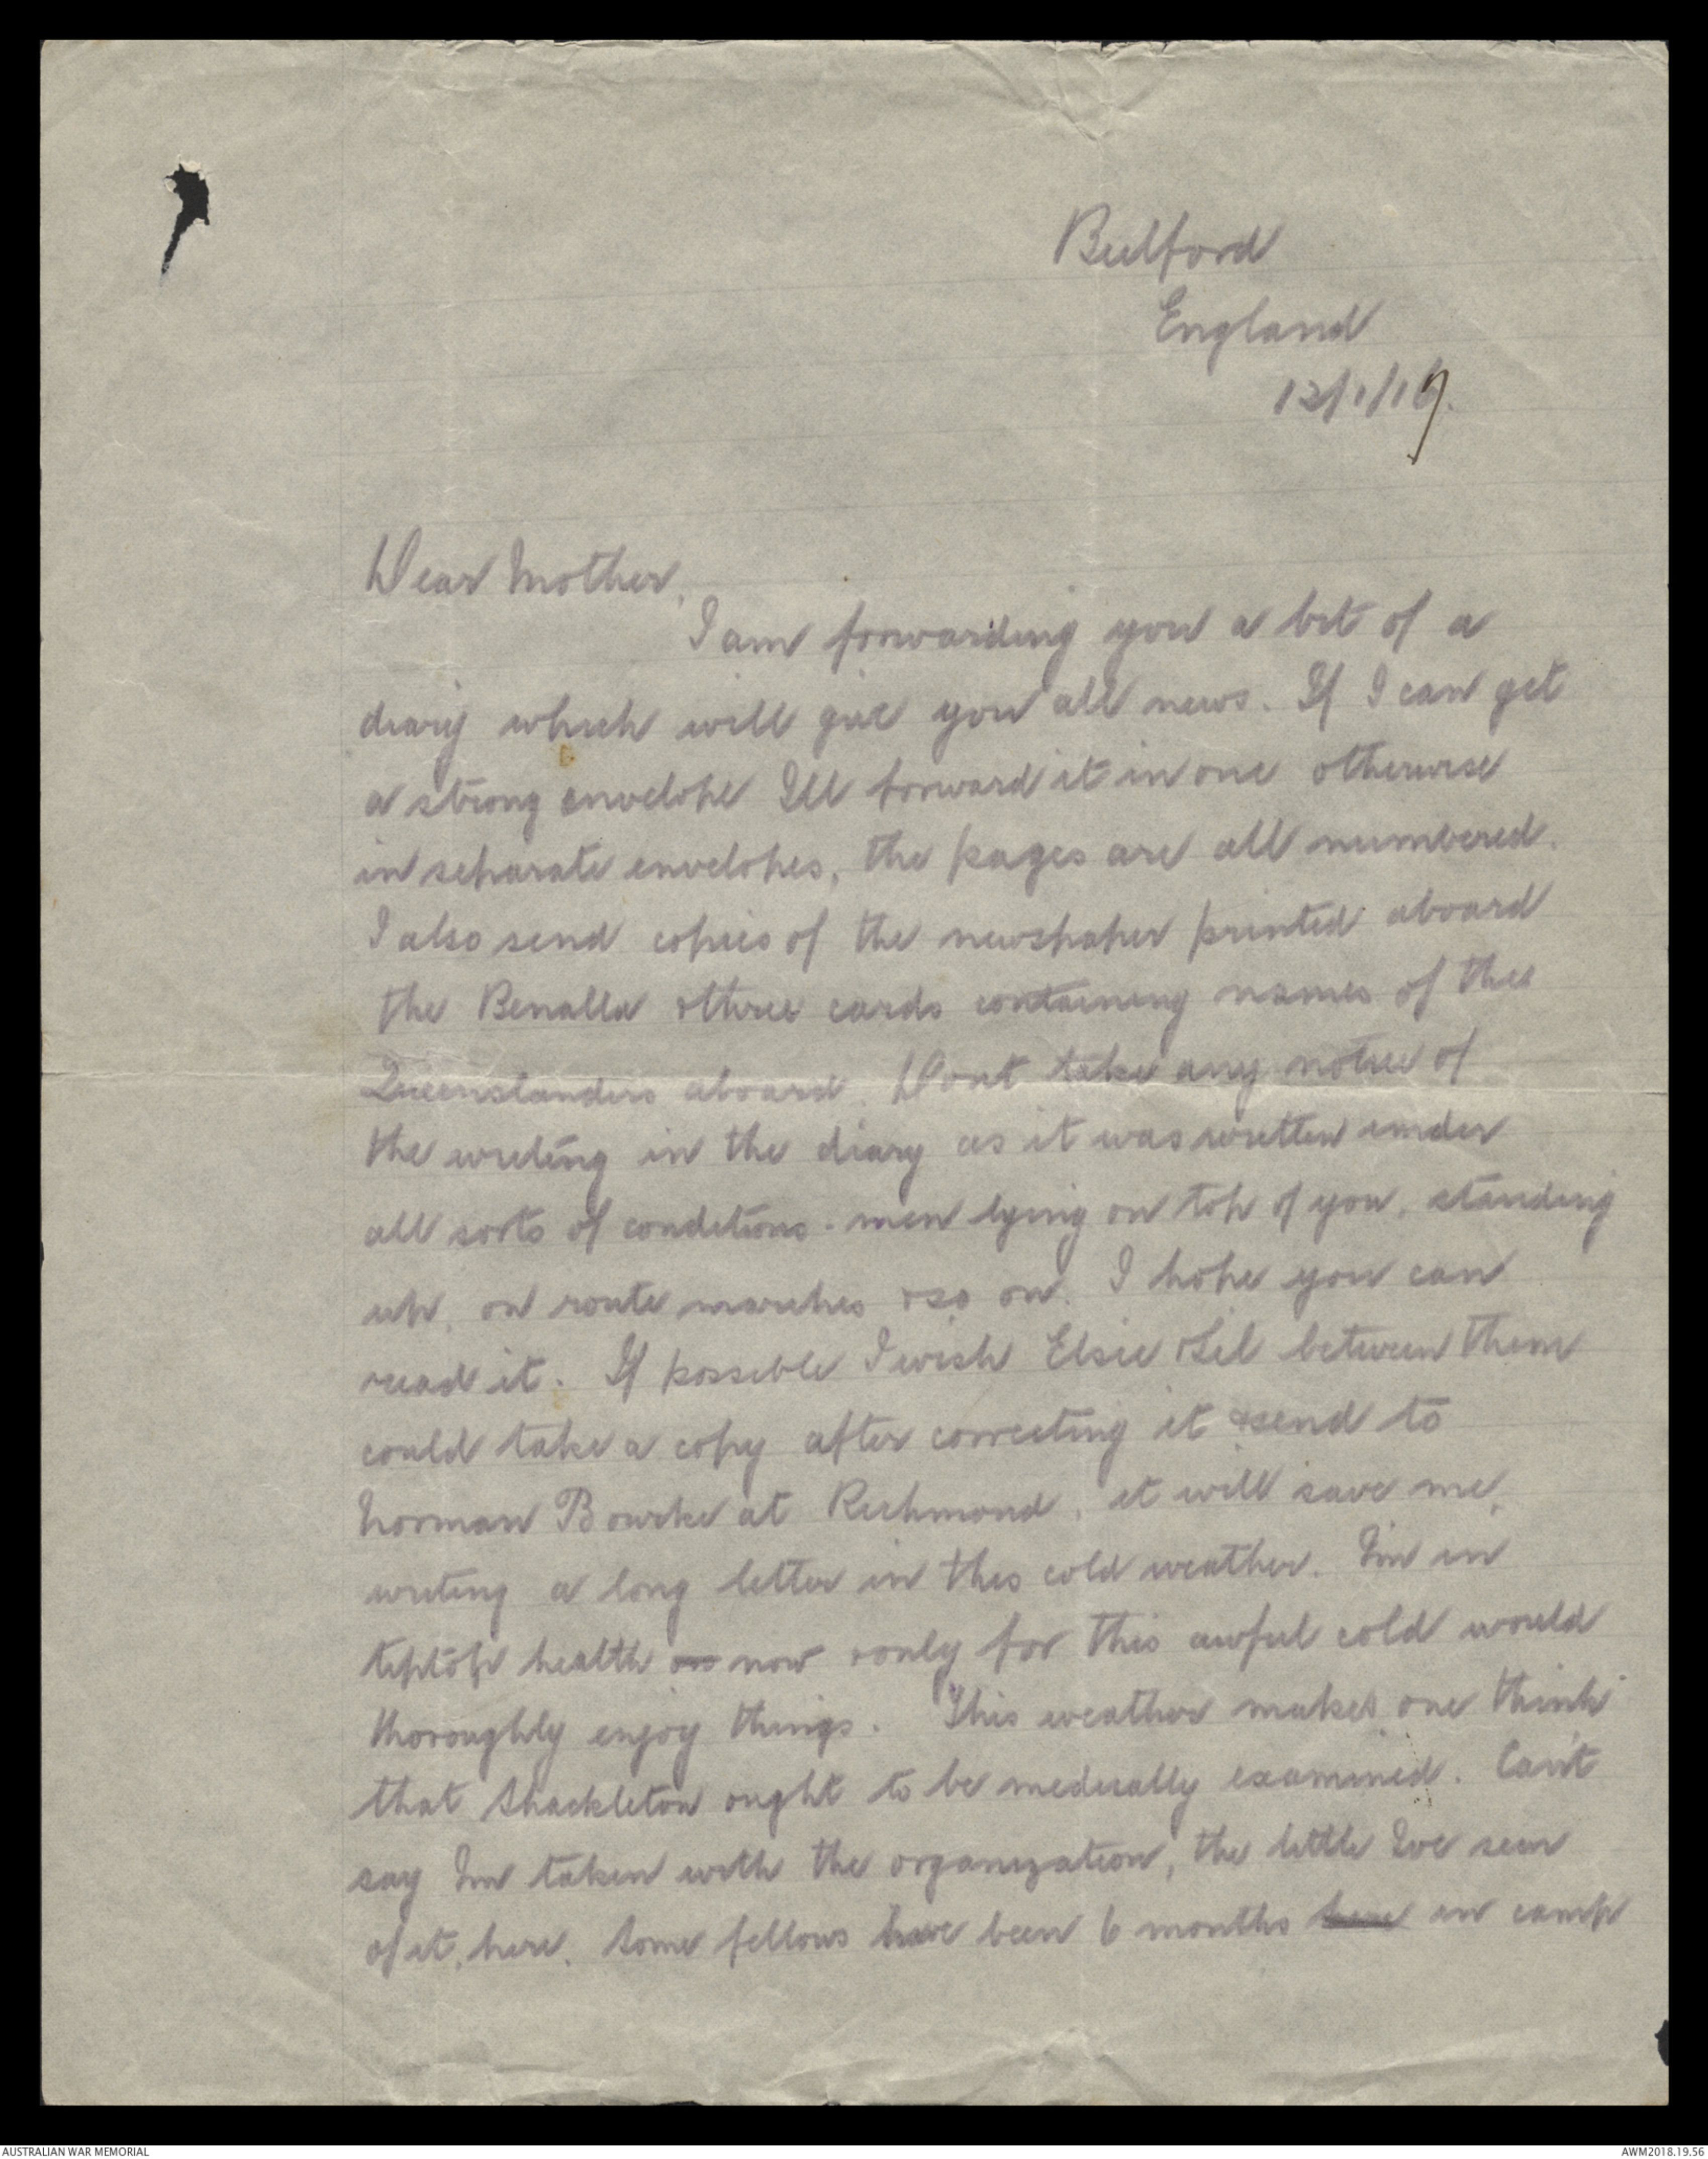 Bulford
England
12/1/17.
Dear Mother,
I am forwarding you a bit of a
diary which will give you all news. If I can get
a strong envelope Ill forward it in one otherwise
in separate envelopes, the pages are all numbered.
I also send copies of the newspaper printed aboard
the Benalla & three cards containing names of the
Queenslanders aboard. Dont take any notice of
the writing in the diary as it was written under
all sorts of conditions - men lying on top of you, standing
up, on route marches & so on. I hope you can
read it. If possible I wish Elsie & Lil between them
could take a copy after correcting it & send to
Norman Bourke at Richmond, it will save me
writing a long letter in this cold weather. Im in
tiptop health now & only for this awful cold would
thoroughly enjoy things. This weather makes one think
that Shackleton ought to be medically examined. Can't
say Im taken with the organization, the little Ive seen
of it, here. Some fellows have been 6 months here in camp
AUSTRALIAN WAR MEMORIAL
AWM2018.19.56